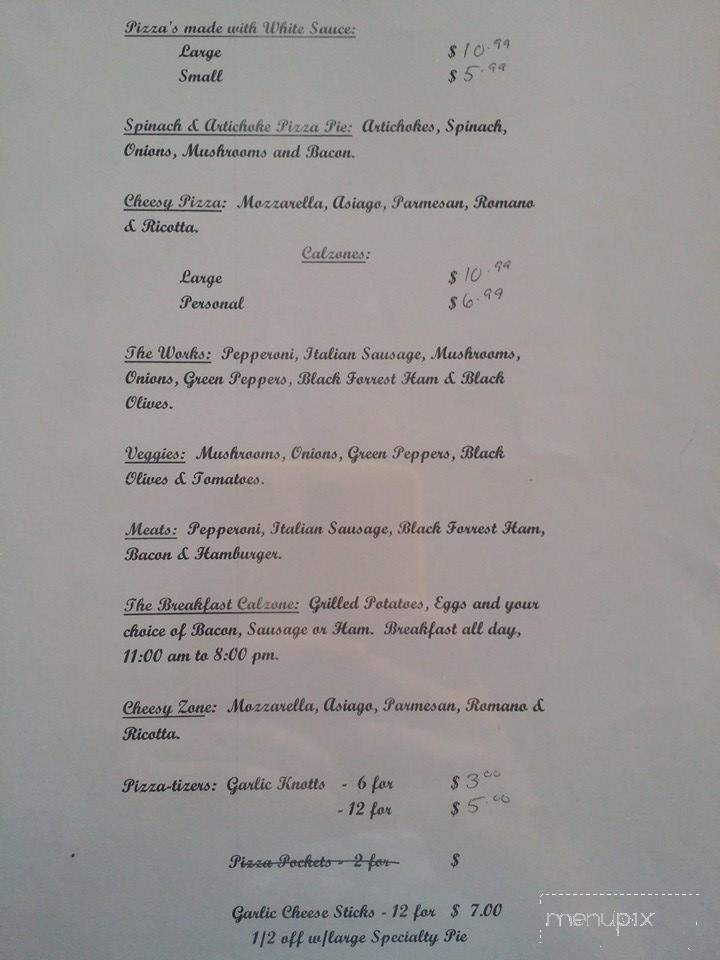 Pizza's made with White Sauce:
Large $ 10.99
Small $ 5.99
Spinach & Artichoke Pizza Pie: Artichokes, Spinach,
Onions, Mushrooms and Bacon.
Cheesy Pizza: Mozzarella, Asiago, Parmesan, Romano
& Ricotta.
Calzones:
Large $ 10.99
Personal $ 6.99
The Works: Pepperoni, Italian Sausage, Mushrooms,
Onions, Green Peppers, Black Forrest Ham & Black
Olives.
Veggies: Mushrooms, Onions, Green Peppers, Black
Olives & Tomatoes.
Meats: Pepperoni, Italian Sausage, Black Forrest Ham,
Bacon & Hamburger.
The Breakfast Calzone: Grilled Potatoes, Eggs and your
choice of Bacon, Sausage or Ham. Breakfast all day,
11:00 am to 8:00 pm.
Cheesy Zone: Mozzarella, Asiago, Parmesan, Romano &
Ricotta.
Pizza-tizers: Garlic Knotts - 6 for $ 3.00
- 12 for $ 5.00
Pizza Pockets - 2 for $
Garlic Cheese Sticks - 12 for $ 7.00
1/2 off w/large Specialty Pie
menupix